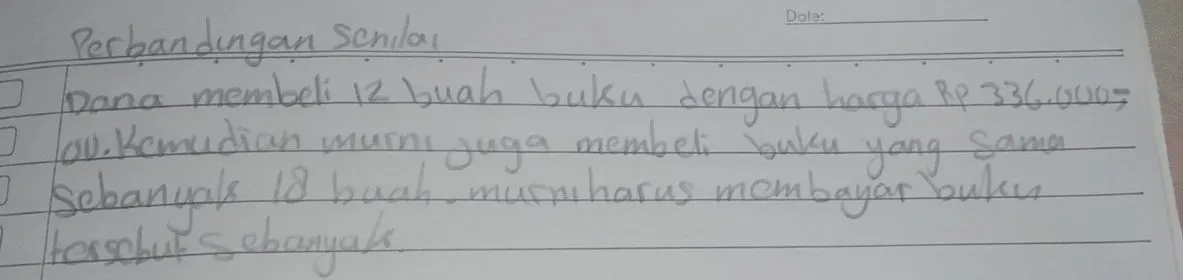 Date:
Perbandingan Senilai
Dana membeli 12 buah buku dengan harga Rp 336.000,
00. Kemudian murni juga membeli buku yang sama
sebanyak 18 buah. murni harus membayar buku
tersebut sebanyak.